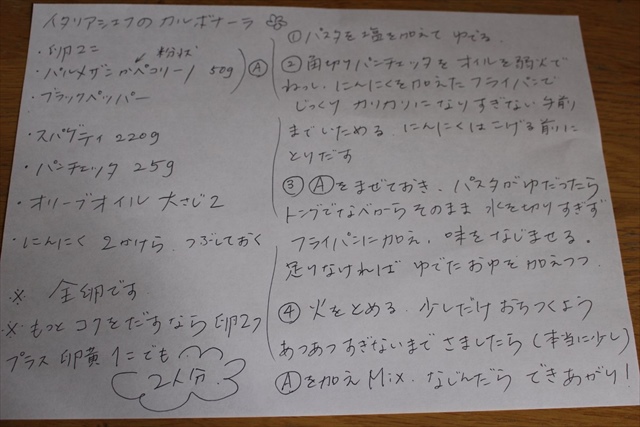 イタリアシェフの カルボナーラ
・卵2コ
粉状
・パルメザンかペコリーノ 50g
Ⓐ
・ブラックペッパー
・スパゲティ 220g
・パンチェッタ 25g
・オリーブオイル 大さじ2
・にんにく 2かけら つぶしておく
※ 全卵です
※ もっと コクをだすなら 卵2つ
プラス 卵黄1こでも
2人分
① パスタを塩を加えて ゆでる.
② 角切りパンチェッタを オイルを弱火で
ねっし、にんにくを加えたフライパンで
じっくり カリカリになりすぎない 手前
までいためる. にんにくはこげる前に
とりだす
③ Ⓐをまぜておき、パスタがゆだったら
トングでなべから そのまま 水を切りすぎず
フライパンに加え、味をなじませる。
足りなければ ゆでたお湯を加えつつ
④ 火をとめる. 少しだけ おちつくよう
あつあつすぎないまで さましたら (本当に少し)
Ⓐを加え Mix. なじんだら できあがり!